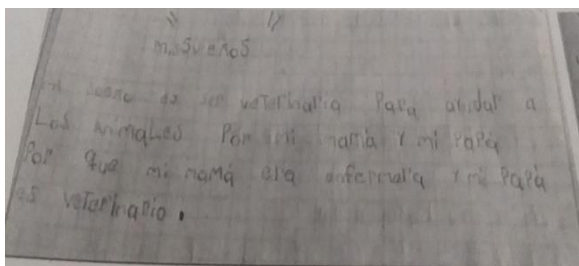 mis sueños
mi sueño es ser veterinaria Para alludar a
Los Animales Por mi mamá y mi PaPá
Por que mi mamá era enfermera y mi PaPá
es veterinario.